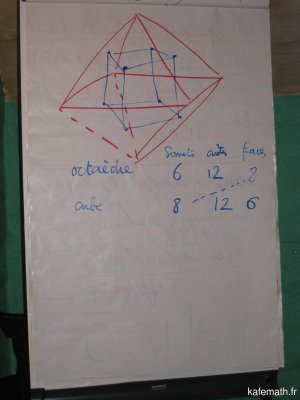 Sommets arêtes faces
octaèdre 6 12 8
cube 8 12 6
kafemath.fr